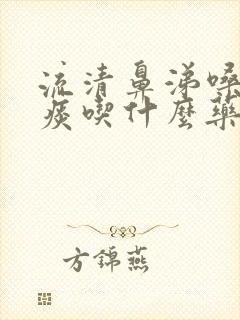 流清鼻涕嗓
痰喫什麼藥
方錦燕